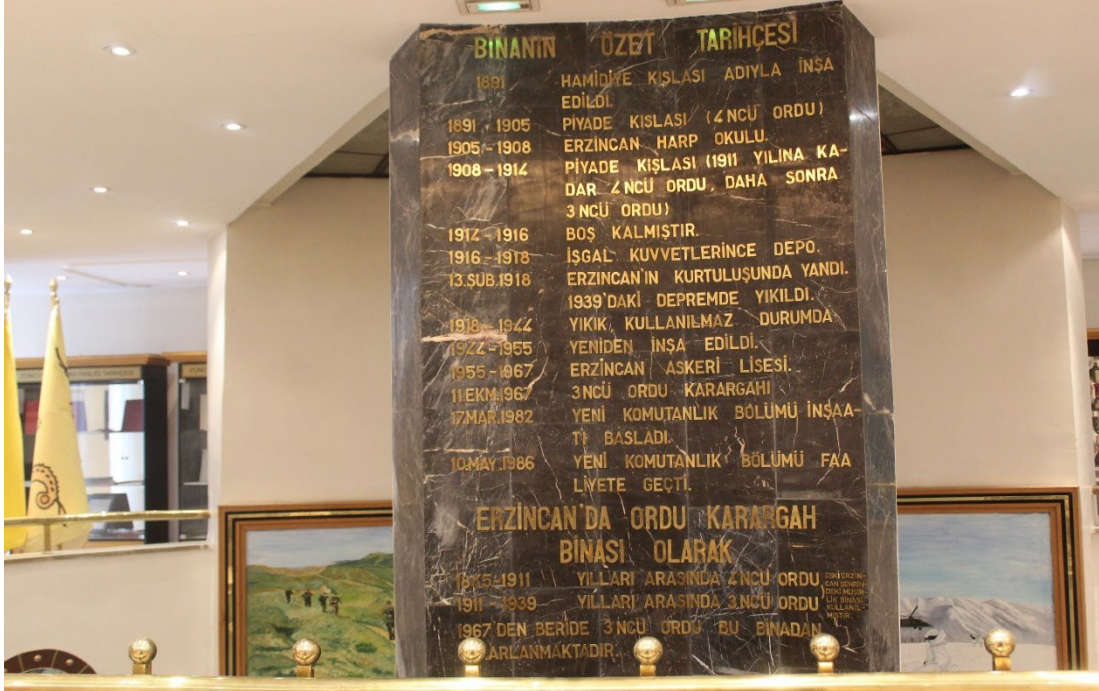 BİNANIN ÖZET TARİHÇESİ
1891 HAMİDİYE KIŞLASI ADIYLA İNŞA
EDİLDİ.
1891 - 1905 PİYADE KIŞLASI (4 NCÜ ORDU)
1905 - 1908 ERZİNCAN HARP OKULU.
1908 - 1914 PİYADE KIŞLASI (1911 YILINA KA-
DAR 4 NCÜ ORDU, DAHA SONRA
3 NCÜ ORDU)
1914 - 1916 BOŞ KALMIŞTIR.
1916 - 1918 İŞGAL KUVVETLERİNCE DEPO.
13.ŞUB.1918 ERZİNCAN'IN KURTULUŞUNDA YANDI.
1939'DAKİ DEPREMDE YIKILDI.
1918 - 1944 YIKIK KULLANILMAZ DURUMDA
1944 - 1955 YENİDEN İNŞA EDİLDİ.
1955 - 1967 ERZİNCAN ASKERİ LİSESİ.
11.EKM.1967 3NCÜ ORDU KARARGAHI
17.MAR.1982 YENİ KOMUTANLIK BÖLÜMÜ İNŞAA-
TI BAŞLADI.
10.MAY.1986 YENİ KOMUTANLIK BÖLÜMÜ FAA
LİYETE GEÇTİ.
ERZİNCAN'DA ORDU KARARGAH
BİNASI OLARAK
YILLARI ARASINDA 4 NCÜ ORDU
1911 - 1939 YILLARI ARASINDA 3 NCÜ ORDU
ESKİ ERZİN-
CAN ŞEHRİN-
DEKİ MÜŞİR-
LİK BİNASI
KULLANIL-
MIŞTIR.
1967'DEN BERİDE 3 NCÜ ORDU BU BİNADAN